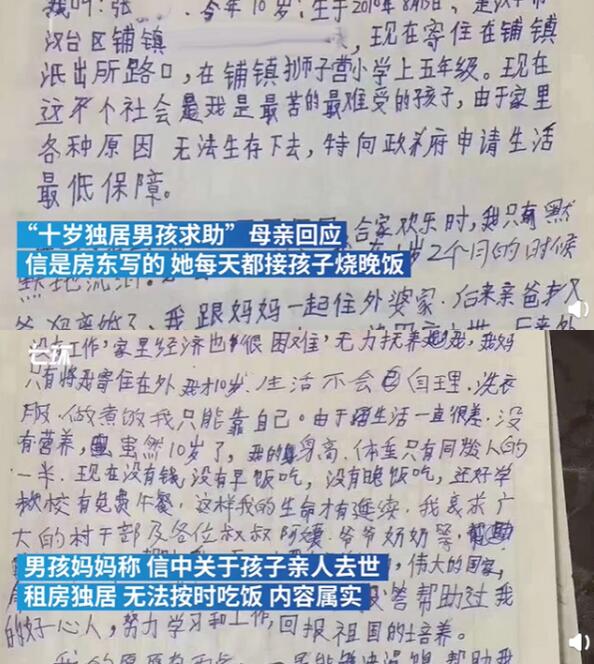 我叫:张 今年10岁,生于2010年8月15日,是汉中市
汉台区铺镇 现在寄住在铺镇
派出所路口,在铺镇狮子营小学上五年级。现在
这个社会是我是最苦的最难受的孩子,由于家里
各种原因 无法生存下去,特向政府申请生活
最低保障。
合家欢乐时,我只有默
“十岁独居男孩求助”母亲回应
岁2个月的时候
信是房东写的 她每天都接孩子烧晚饭
我跟妈妈一起住外婆家.后来亲爸
没有工作,家里经济也很困难,无力抚养我,我妈
只有将我寄住在外 我才10岁.生活不会自理.洗衣
服.做煮饭我只能靠自己。由于生活一直很差.没
有营养,虽然10岁了,我的身高.体重只有同龄人的
一半.现在没有钱,没有早饭吃,没有晚饭吃,还好学
校有免费午餐,这样我的生命才有延续.我哀求广
大的村干部及各位叔叔阿姨.爷爷奶奶等,帮助
男孩妈妈称 信中关于孩子亲人去世
伟大的国家,
租房独居 无法按时吃饭 内容属实
帮助过我
的好心人,努力学习和工作,回报祖国的培养。